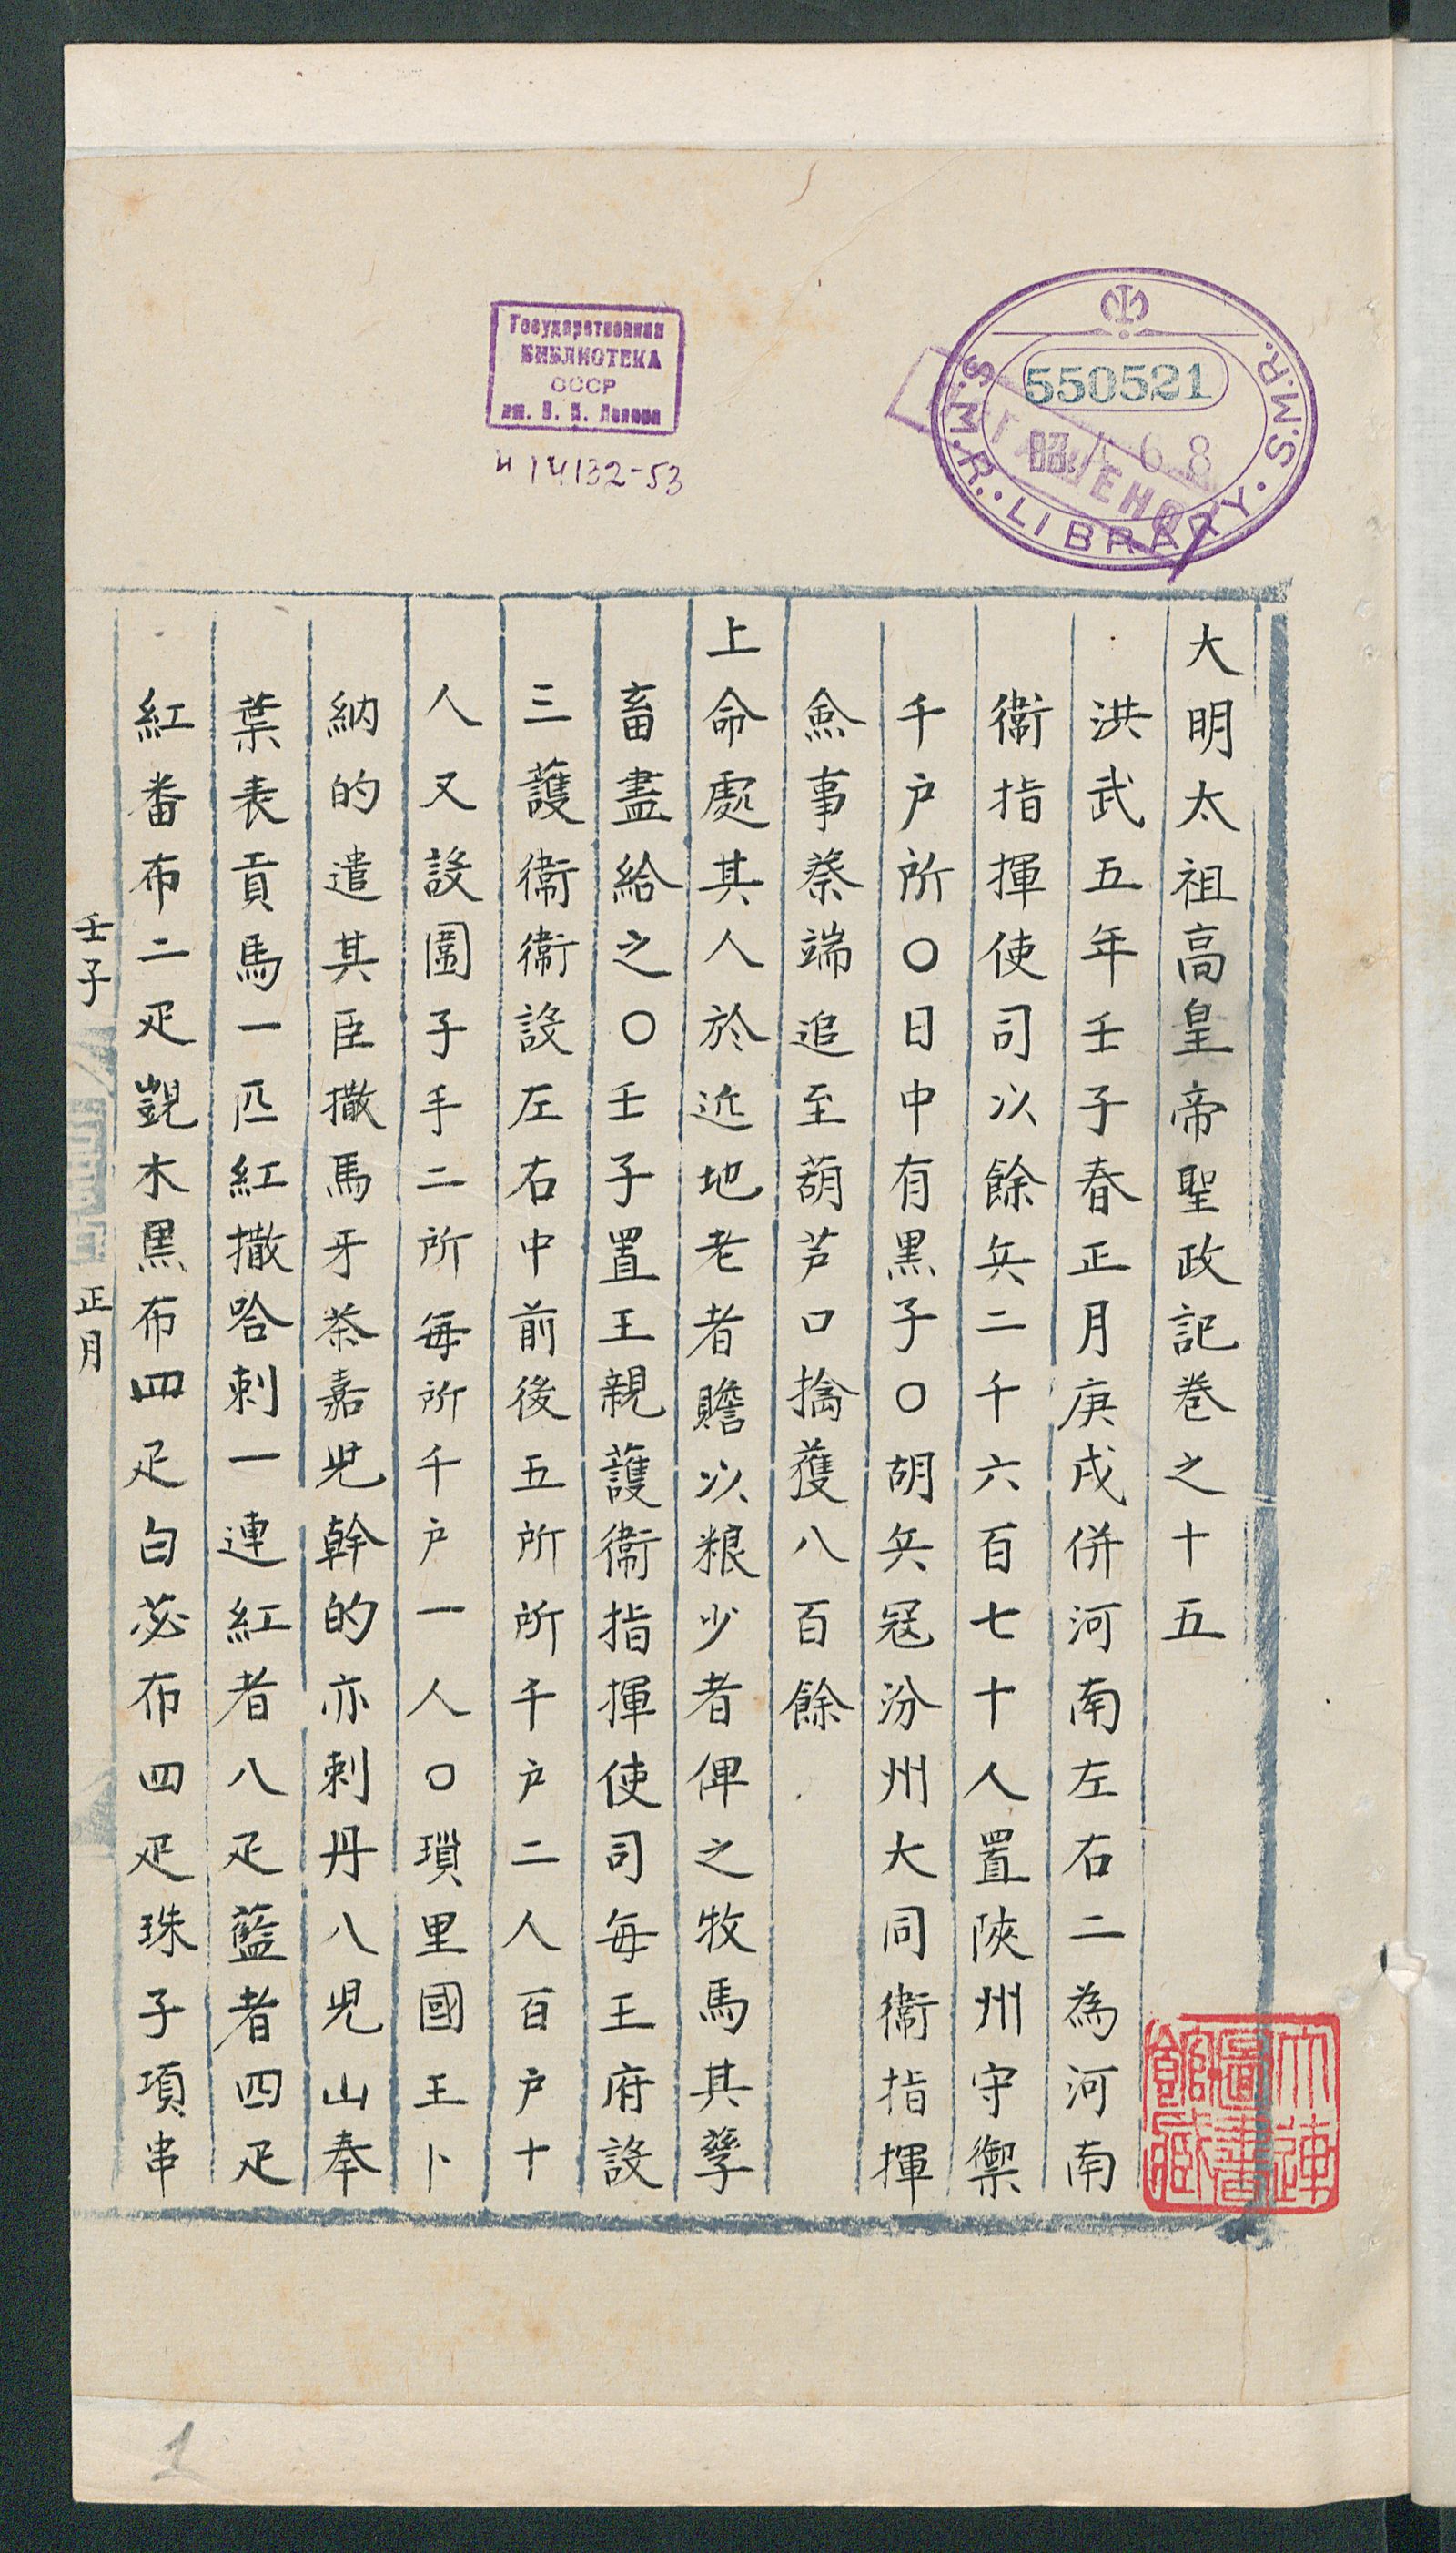 大明太祖高皇帝聖政記卷之十五
洪武五年壬子春正月庚戌併河南左右二為河南
衛指揮使司以餘兵二千六百七十人置陝州守禦
千户所○日中有黑子○胡兵冦汾州大同衛指揮
僉事蔡端追至葫芦口擒獲八百餘
上命處其人於近地老者贍以粮少者俾之牧馬其孳
畜盡給之○壬子置王親護衛指揮使司每王府設
三護衛衛設左右中前後五所所千户二人百户十
人又設圍子手二所每所千户一人○瑣里國王卜
納的遣其臣撒馬牙茶嘉児幹的亦剌丹八児山奉
葉表貢馬一匹紅撒哈剌一連紅者八疋藍者四疋
紅番布二疋覬木黑布四疋白苾布四疋珠子項串
壬子
正月
Государственная
БИБЛИОТЕКА
СССР
им. В. И. Ленина
и 14132-53
S.M.R. LIBRARY. S.M.R.
550521
大連
圖書
館藏
1